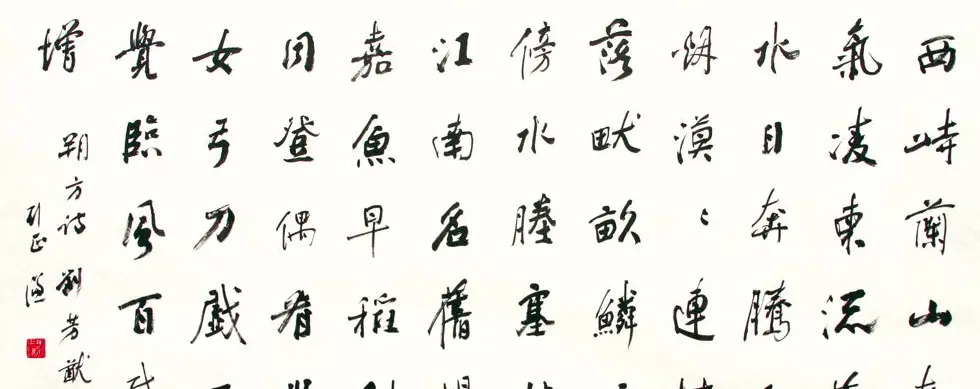 西峙蘭山
氣凌東流
水日奔騰
烟漠〻連
落畎畝鱗
傍水塍塞
江南名舊
嘉魚早稻
同登偶看
女弓刀戲
覺臨風百
增
朔方詩 劉芳猷
刘正谦